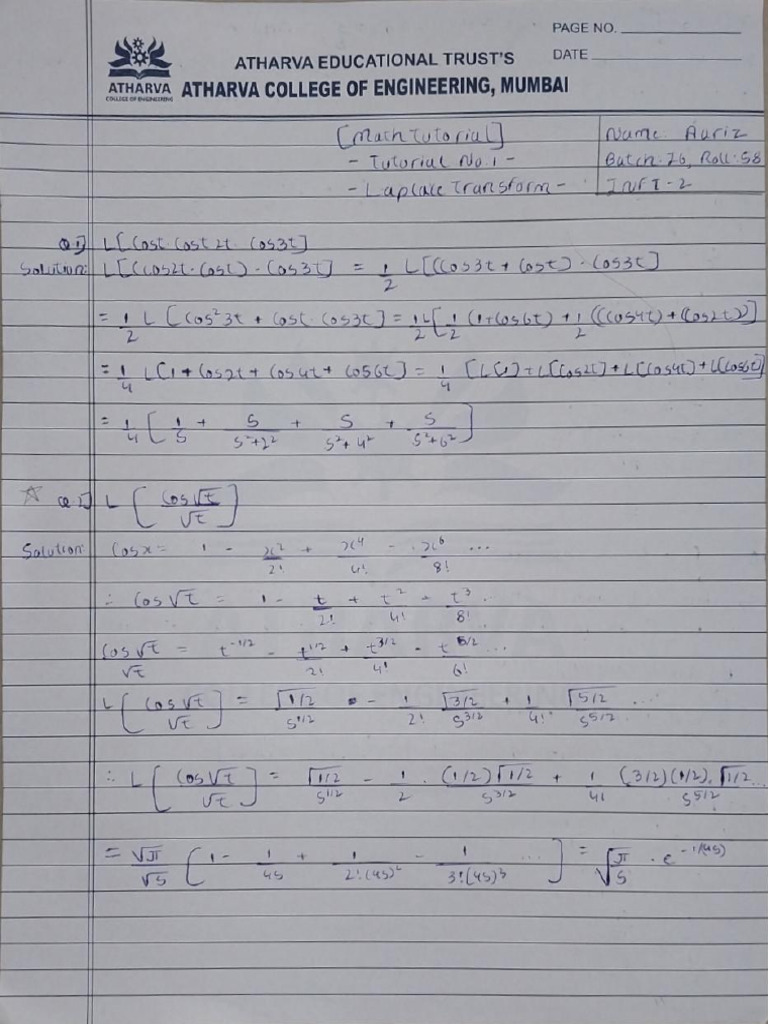 PAGE NO.
DATE
ATHARVA EDUCATIONAL TRUST'S
ATHARVA COLLEGE OF ENGINEERING, MUMBAI
ATHARVA
COLLEGE OF ENGINEERING
[Math Tutorial] Name Aariz
- Tutorial No.1 - Batch:26, Roll:58
- Laplace Transform - INFT-2
Q.1] L[Cost·Cost2t·Cos3t]
Solution: L[(Cos2t·Cost)·Cos3t] = 1/2 L[(Cos3t + Cost)·Cos3t]
= 1/2 L[Cos²3t + Cost·Cos3t] = 1/2 L[1/2 (1+Cos6t) + 1/2 ((Cos4t)+(Cos2t))]
= 1/4 L[1 + Cos2t + Cos4t + Cos6t] = 1/4 [L[1] + L[Cos2t] + L[Cos4t] + L[Cos6t]
= 1/4 [1/S + S/S²+2² + S/S²+4² + S/S²+6²]
☆ Q.2] L[Cos√t/√t]
Solution: Cosx = 1 - x²/2! + x⁴/4! - x⁶/8! ...
∴ Cos√t = 1 - t/2! + t²/4! - t³/8! ..
Cos√t/√t = t^-1/2 - t^1/2/2! + t^3/2/4! - t^5/2/6! ...
L[Cos√t/√t] = Γ1/2/S^1/2 - 1/2! Γ3/2/S^3/2 + 1/4! Γ5/2/S^5/2 ...
∴ L[Cos√t/√t] = Γ1/2/S^1/2 - 1/2 · (1/2)Γ1/2/S^3/2 + 1/4! (3/2)(1/2).Γ1/2/S^5/2 ...
= √π/√S [1 - 1/4S + 1/2!(4S)² - 1/3!(4S)³ ...] = √π/S · e^-1/(4S)